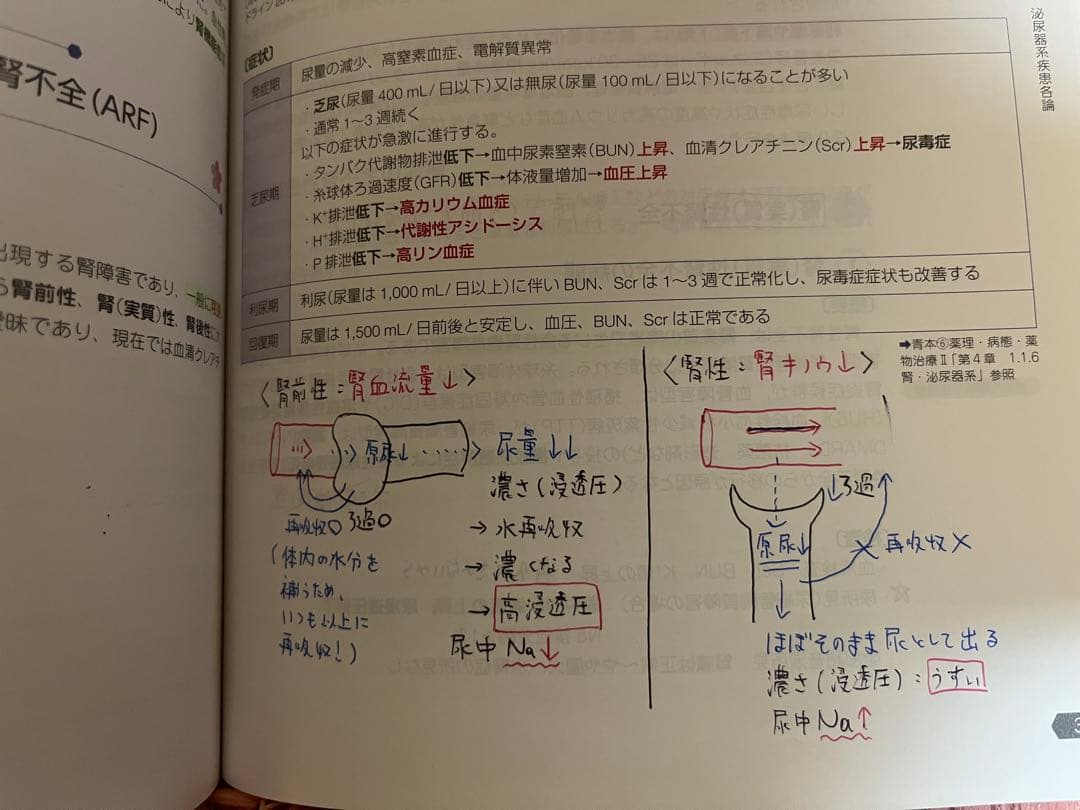 ドライン 20
により腎機能
腎不全(ARF)
出現する腎障害であり、一般に可逆
ら腎前性、腎(実質)性、腎後性に
曖昧であり、現在では血清クレアチ
泌尿器系疾患各論
〔症状〕
発症期
尿量の減少、高窒素血症、電解質異常
乏尿期
・乏尿(尿量 400 mL/ 日以下)又は無尿(尿量 100 mL/ 日以下)になることが多い
・通常 1~3 週続く
以下の症状が急激に進行する。
・タンパク代謝物排泄低下→血中尿素窒素(BUN)上昇、血清クレアチニン(Scr)上昇→尿毒症
・糸球体ろ過速度(GFR)低下→体液量増加→血圧上昇
・K⁺排泄低下→高カリウム血症
・H⁺排泄低下→代謝性アシドーシス
・P 排泄低下→高リン血症
利尿期
利尿(尿量は 1,000 mL/ 日以上)に伴い BUN、Scr は 1~3 週で正常化し、尿毒症症状も改善する
回復期
尿量は 1,500 mL/ 日前後と安定し、血圧、BUN、Scr は正常である
➡青本⑥薬理・病態・薬
物治療Ⅱ「第4章 1.1.6
腎・泌尿器系」参照
〈腎前性:腎血流量↓〉
原尿↓
尿量↓↓
濃さ(浸透圧)
再吸収○ ろ過○
→水再吸収
(体内の水分を
補うため、
いつも以上に
再吸収!)
→濃くなる
→高浸透圧
尿中Na↓
〈腎性:腎キノウ↓〉
↓ろ過
原尿↓
再吸収×
ほぼそのまま尿として出る
濃さ(浸透圧):うすい
尿中Na↑
3